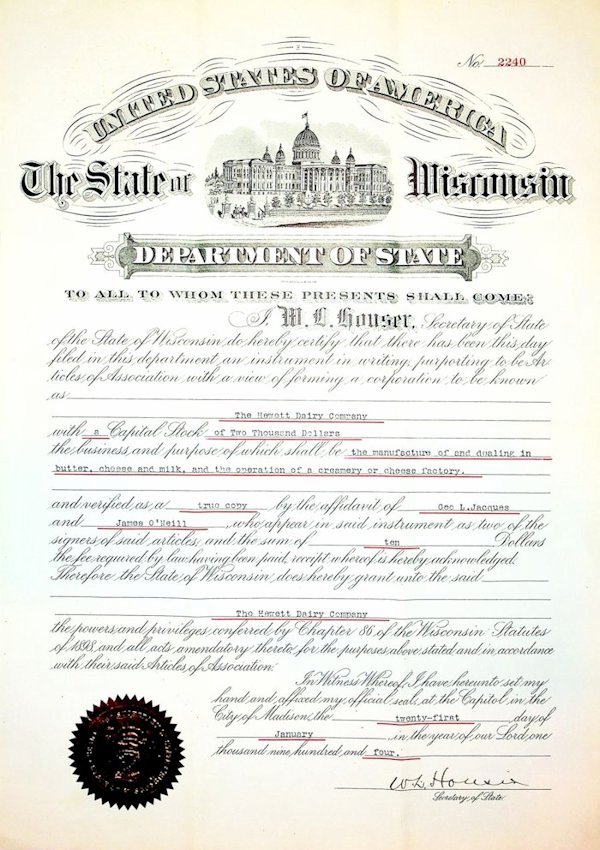 No. 2240
UNITED STATES OF AMERICA
The State of Wisconsin
DEPARTMENT OF STATE
TO ALL TO WHOM THESE PRESENTS SHALL COME:
I, W. L. Houser, Secretary of State
of the State of Wisconsin do hereby certify that there has been this day
filed in this department an instrument in writing, purporting to be Ar
ticles of Association with a view of forming a corporation to be known
as
The Hewett Dairy Company
with a Capital Stock of Two Thousand Dollars
the business and purpose of which shall be the manufacture of and dealing in
butter, cheese and milk, and the operation of a creamery or cheese factory.
and verified as a true copy by the affidavit of Geo L. Jacques
and James O'Neill, who appear in said instrument as two of the
signers of said articles, and the sum of ten Dollars
the fee required by law having been paid, receipt whereof is hereby acknowledged.
Therefore the State of Wisconsin does hereby grant unto the said
The Hewett Dairy Company
the powers and privileges conferred by Chapter 86 of the Wisconsin Statutes
of 1898, and all acts amendatory thereto for the purposes above stated and in accordance
with their said Articles of Association.
In Witness Whereof, I have hereunto set my
hand and affixed my official seal, at the Capitol in the
City of Madison, the twenty-first day of
January in the year of our Lord one
thousand nine hundred and four.
W L Houser
Secretary of State